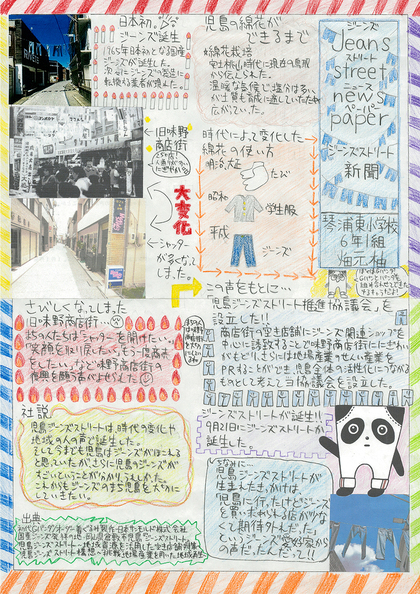 Jeans
ジーンズ
street
ストリート
news
ニュース
paper
ペーパー
ジーンズストリート
新聞
琴浦東小学校
6年1組
日本初。
ジーンズ誕生
1965年日本初となる国産
ジーンズが誕生した。
次々にジーンズの製造に
転換する業者が現れた。
児島の綿花が
できるまで
綿花栽培
室町時代に現在の鳥取
から伝えられた。
温暖な気候で塩分に強い
広がっていた。
時代によって変化した
綿花の使い方
明治、大正
たび
昭和
学生服
平成
ジーンズ
←旧味野
商店街
大変化
←シャッター
が多くなし
ました。
この声をもとに…
「児島ジーンズストリート推進協議会」を
設立した!!
商店街の空き店舗にジーンズ関連ショップを
中心に誘致することで味野商店街ににぎわ
いをもどし、さらには地場産業のせんい産業を
PRすることができ、児島全体の活性化につながる
ものとして考えて当協議会を設立した。
さびしくなってしまった
旧味野商店街…
まちの人たちは「シャッターを開けたい。」
「笑顔を取り戻したい。」「もう一度再来
をしたい。」など味野商店街の
復興を願う声が上がった
社説
児島ジーンズストリートは、時代の変化や
地域の人の声で誕生した。
そして今までも児島はジーンズがほこれる
と思っていたが、さらに児島のジーンズが
すごいということが分かりました。
これからもジーンズのまち児島を大切に
していきたい。
ジーンズストリートが誕生!!
9月21日にジーンズストリートが
誕生した。
ちなみに…
児島ジーンズストリートが
生まれたきっかけは、
「児島に行ったけどジーンズ
を買いまわれる店が少な
くて期待外れだった」
というジーンズ愛好家から
の声だったんだって!!
出典